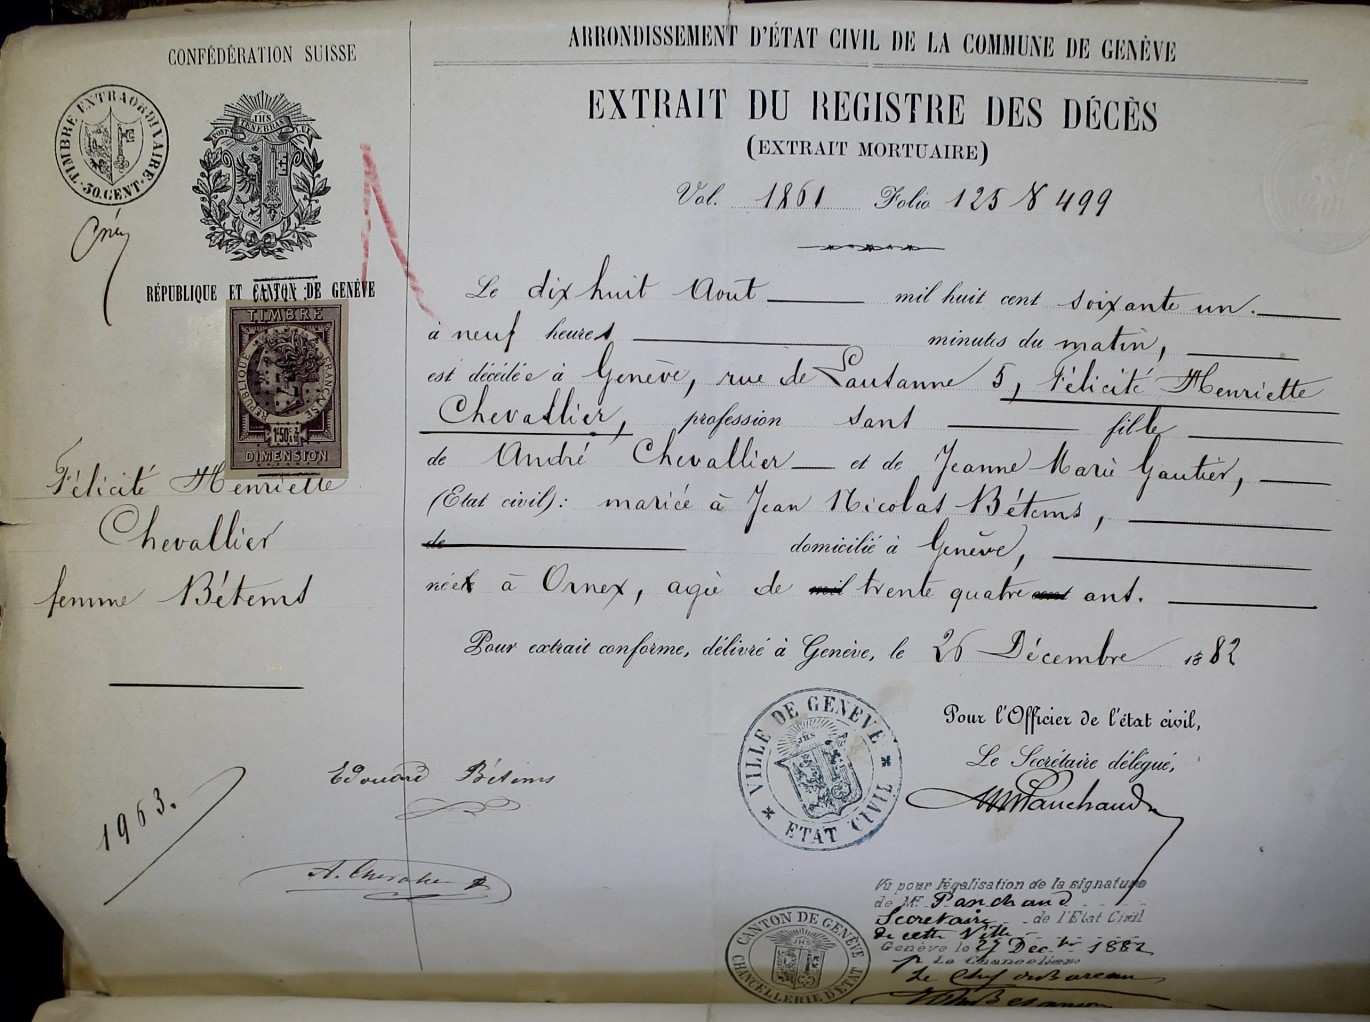 CONFÉDÉRATION SUISSE
TIMBRE EXTRAORDINAIRE
30. CENT.
POST TENEBRAS LUX
JHS
RÉPUBLIQUE ET CANTON DE GENÈVE
TIMBRE
RÉPUBLIQUE FRANÇAISE
DIMENSION
Félicité Henriette
Chevallier
femme Bétems
1963.
ARRONDISSEMENT D'ÉTAT CIVIL DE LA COMMUNE DE GENÈVE
EXTRAIT DU REGISTRE DES DÉCÈS
(EXTRAIT MORTUAIRE)
Vol. 1861 Folio 125 N 499
Le dix huit Aout mil huit cent soixante un.
à neuf heures minutes du matin,
est décédée à Genève, rue de Lausanne 5, Félicité Henriette
Chevallier, profession sans fille
de André Chevallier et de Jeanne Marie Gautier,
(Etat civil): mariée à Jean Nicolas Bétems,
de domicilié à Genève,
née à Ornex, agée de mil trente quatre cent ans.
Pour extrait conforme, délivré à Genève, le 26 Décembre 1882
Pour l'Officier de l'état civil,
Le Secrétaire délégué,
Panchaud
VILLE DE GENÈVE
ETAT CIVIL
Edouard Bétems
Vu pour légalisation de la signature
de Mr. Panchaud
Secretaire de l'Etat Civil
de cette Ville
Genève le 27 Dec.bre 1882
p. Le Chancelier
Le Chef du Bureau
CANTON DE GENÈVE
CHANCELLERIE D'ÉTAT